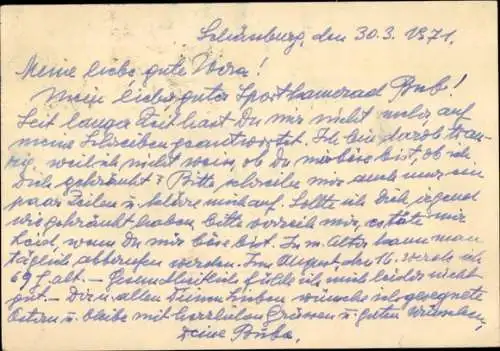 Schönburg, den 30.3.1971.
Meine liebe gute Vera!
Mein lieber guter Sportkamerad Bub!
Seit langer Zeit hast Du mir nicht mehr, auf
meine Schreiben geantwortet. Ich bin darob traurig,
weil ich nicht weiss, ob Du mir böse bist, ob ich
Dich gekränkt? Bitte schreibe mir auch nur ein
paar Zeilen u. kläre mich auf. Sollte ich Dich irgend
wie gekränkt haben, bitte verzeih mir, es täte mir
Leid, wenn Du mir böse bist. In m. Alter kann man
täglich abberufen werden. Im August, den 16. werde ich
69 J. alt. - Gesundheitlich fühle ich mich leider nicht
gut. - Dir u. allen Deinen Lieben wünsche ich gesegnete
Ostern u. bleibe mit herzlichen Grüssen u. guten Wünschen,
Deine Buba.